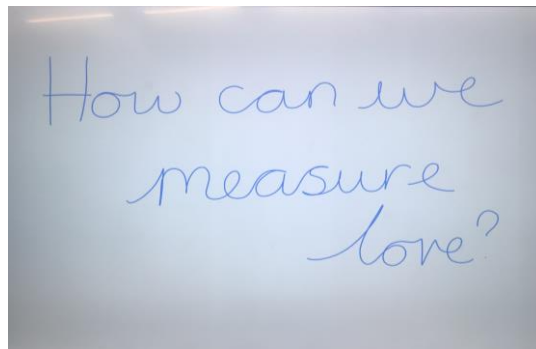 How can we
measure
love?